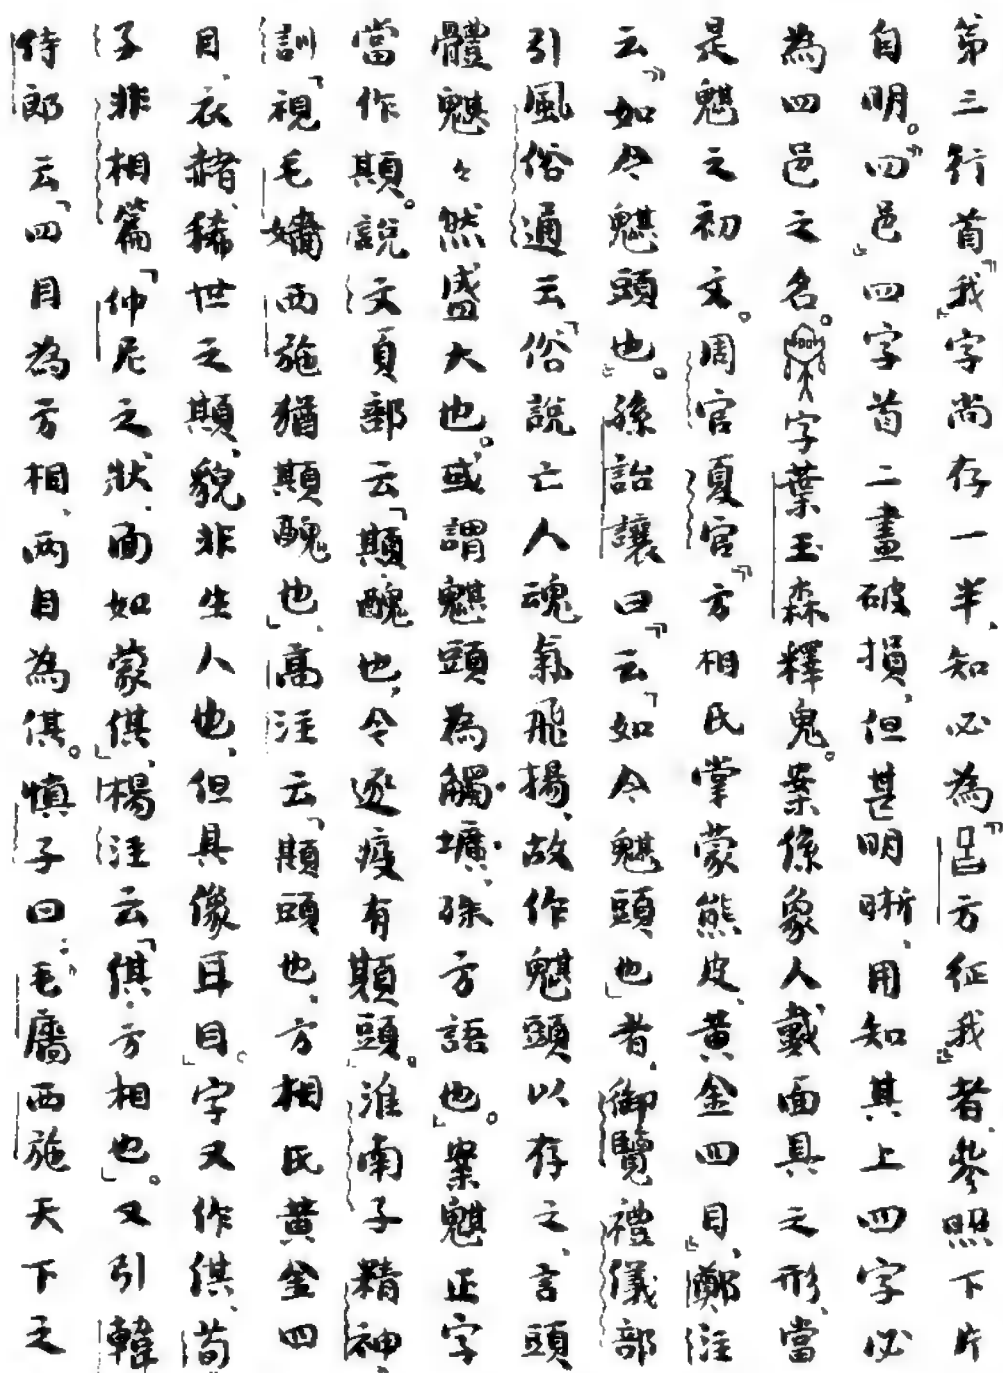 第三行首『我』字尚存一半、知必為『呂方征我』者、參照下片
自明。『四邑』四字首二畫破損、但甚明晰、用知其上四字必
為四邑之名。字葉玉森釋鬼。案係象人戴面具之形、當
是魌之初文。周官夏官『方相氏掌蒙熊皮、黃金四目』、鄭注
云『如今魌頭也』。孫詒讓曰『云「如今魌頭也」者、御覽禮儀部
引風俗通云「俗說亡人魂氣飛揚、故作魌頭以存之、言頭
體魌々然盛大也。或謂魌頭為觸壙、殊方語也」。案魌正字
當作䫏。說文頁部云「䫏、醜也、今逐疫有䫏頭」。淮南子精神
訓「視毛嬙西施猶䫏醜也」、高注云「䫏頭也、方相氏黃金四
目、衣赭、稀世之䫏、貌非生人也、但具像耳目」。字又作倛、荀
子非相篇「仲尼之狀、面如蒙倛」、楊注云「倛、方相也」。又引韓
侍郎云「四目為方相、兩目為倛。慎子曰、毛廧西施天下之